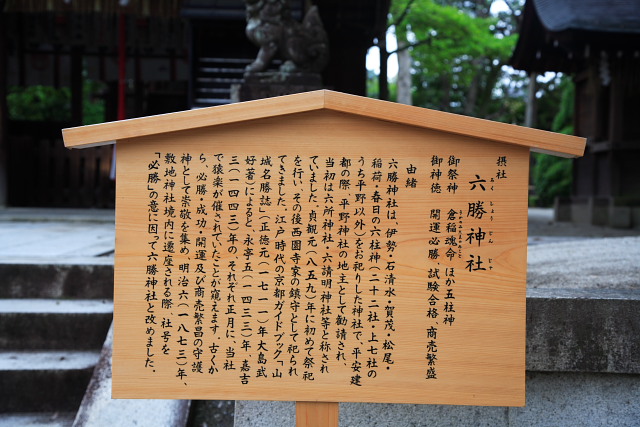 摂社
六勝神社
ろくしょうじんじゃ
御祭神　倉稲魂命　ほか五柱神
うかのみたまのみこと
御神徳　開運必勝、試験合格、商売繁盛
由緒
六勝神社は、伊勢・石清水・賀茂・松尾・
稲荷・春日の六柱神（二十二社・上七社の
うち平野以外）をお祀りした神社で、平安建
都の際、平野神社の地主として勧請され、
当初は六所神社・六請明神社等と称され
ていました。貞観元（八五九）年に初めて祭祀
を行い、その後西園寺家の鎮守として祀られ
てきました。江戸時代の京都ガイドブック「山
城名勝誌」（正徳元（一七一一）年大島武
好著）によると、永享五（一四三三）年、嘉吉
三（一四四三）年の、それぞれ正月に、当社
で猿楽が催されていたことが窺えます。古くか
ら、必勝・成功・開運及び商売繁昌の守護
神として崇敬を集め、明治六（一八七三）年、
敷地神社境内に遷座される際、社号を
「必勝」の意に因って六勝神社と改めました。